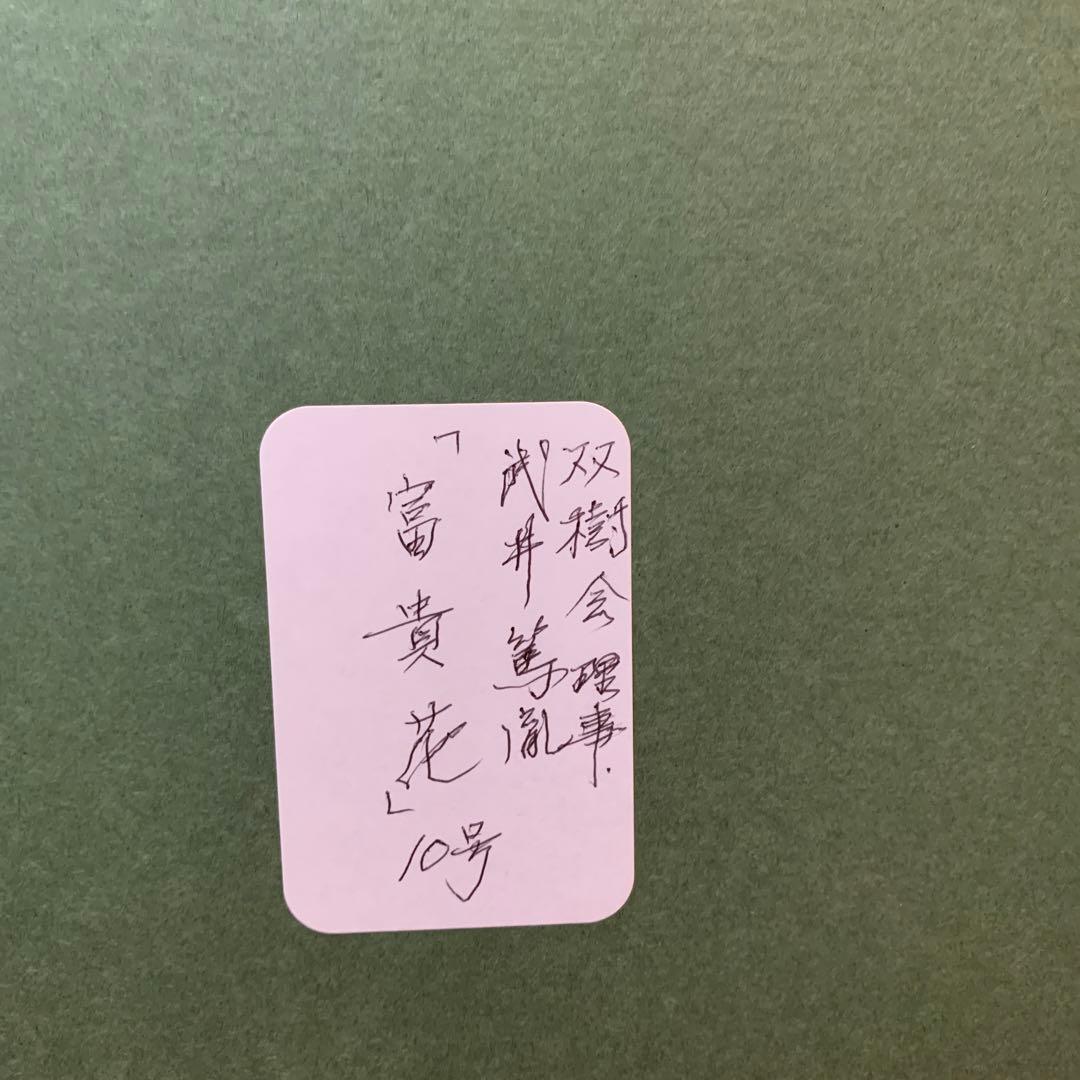 双樹会理事.
武井篤胤
「富貴花」10号